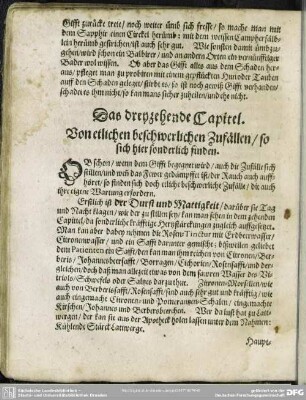 Gifft zurücke trete / noch weiter umb sich fresse / so mache man mit
dem Sapphir einen Circkel herümb: mit dem weissen Campherfälb-
lein herümb gestrichen / ist auch sehr gut. Wie sonsten damit umbzu-
gehen / wird schon ein Balbirer / und an andern Orten ein vernünfftiger
Bader wol wissen. Ob aber das Gifft alles aus dem Schaden her-
aus / pfleget man zu probiren mit einem gepflückten Hun oder Tauben
auff den Schaden geleget / stirbt es / so ist noch gewiß Gifft vorhanden /
schadet es ihm nicht / so kan mans sicher zuheilen / und ehe nicht.
Das dreyzehende Capitel.
Von etlichen beschwerlichen Zufällen / so
sich hier sonderlich finden.
OB schon / wenn dem Gifft begegnet wird / auch die Zufälle sich
stillen / und was das Feuer gedämpffet ist / der Rauch auch auff-
höret / so finden sich doch etliche beschwerliche Zufälle / die auch
ihre eigene Wartung erfordern.
Erstlich ist der Durst und Mattigkeit / darüber sie Tag
und Nacht klagen / wie der zu stillen sey / kan man sehen in dem zehenden
Capitel / da sonderliche kräfftige Hertzstärckungen zugleich auffgesetzet.
Man kan aber dabey nehmen die Rosen Tinctur mit Erdbeerwasser /
Citronenwasser / und ein Safft darunter gemischt: bißweilen geliebet
dem Patienten ein Safft / den kan man ihm reichen von Citronen / Ber-
beris / Johannebeersafft / Borragen / Cichorien / Rosensafft / und der-
gleichen / doch daß man allezeit etwas von dem sauren Wasser des Vi-
triols / Schwefels oder Saltzes darzu thut. Citronen-Morsellen / wie
auch von Berberissafft / Rosensafft / sind auch sehr gut und kräfftig / wie
auch eingemachte Citronen- und Pomerantzen-Schalen / eingemachte
Kirschen / Johannes und Berberobeerchen. Wer da lust hat zu Latt-
wergen / der kan sie aus der Apotheck holen lassen unter dem Nahmen:
Kühlende Stärck Lattwerge.
Haupt-